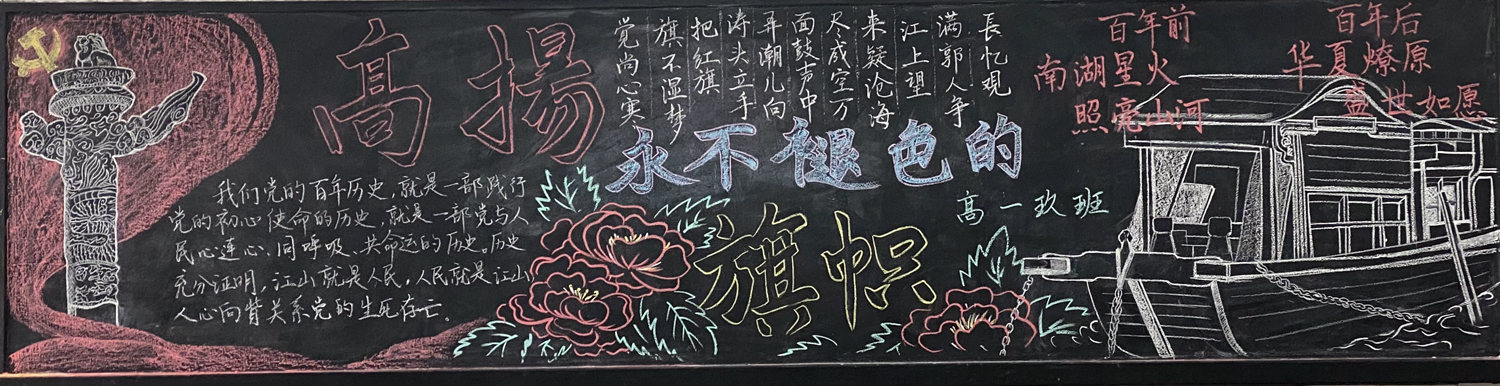 高揚
永不褪色的
旗帜
高一玖班
我们党的百年历史,就是一部践行
党的初心使命的历史,就是一部党与人
民心连心、同呼吸、共命运的历史。历史
充分证明,江山就是人民,人民就是江山
人心向背关系党的生死存亡。
長忆观
满郭人争
江上望
来疑沧海
尽成空万
面鼓声中
弄潮儿向
涛头立手
把红旗
旗不湿梦
觉尚心寒
百年前
南湖星火
照亮山河
百年后
华夏燎原
盛世如愿